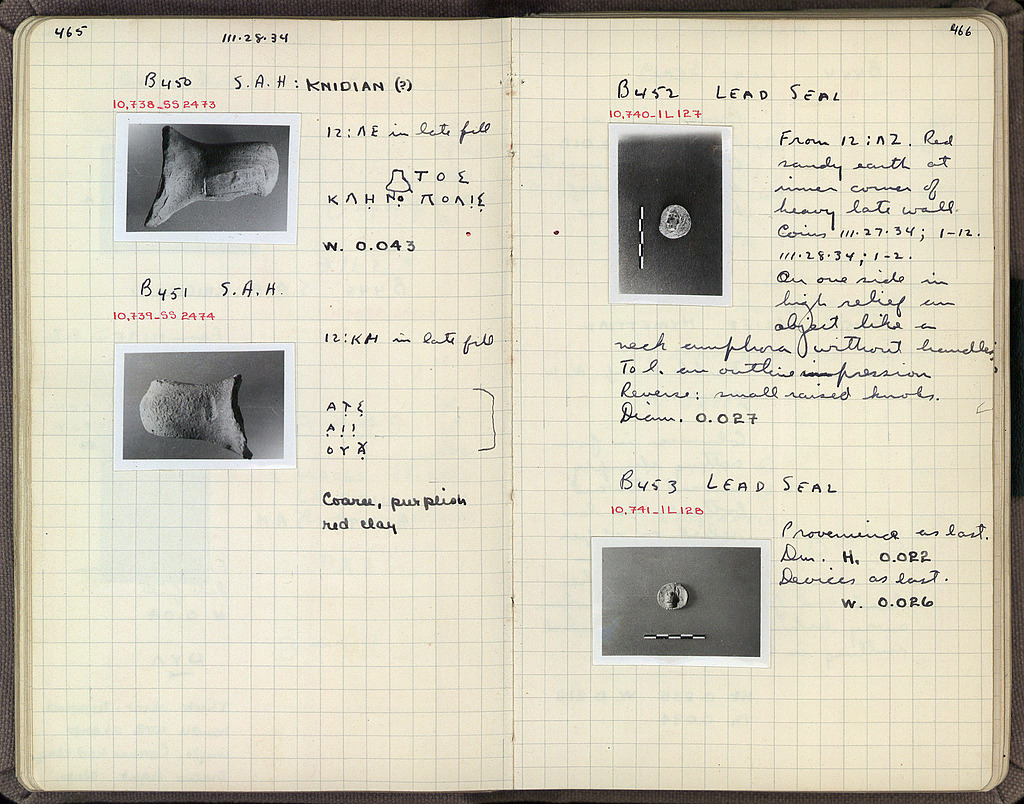 465
111·28·34
B450 S.A.H: KNIDIAN (?)
10,738_SS 2473
12:ΛΕ in late fill
ΤΟΣ
ΚΛΗΝΟΠΟΛΙΣ
W. 0.043
B451 S.A.H.
10,739_SS 2474
12:ΚΗ in late fill
ΑΤΣ
ΑΙΙ
ΟΥΑ
Coarse, purplish
red clay
466
B452 LEAD SEAL
10,740_IL127
From 12:ΛΖ. Red
sandy earth at
inner corner of
heavy late wall.
Coins 111·27·34; 1-12.
111·28·34; 1-2.
On one side in
high relief an
object like a
neck amphora without handles,
To l. an outline impression
Reverse: small raised knobs.
Diam. 0.027
B453 LEAD SEAL
10,741_IL128
Provenience as last.
Dim. H. 0.022
Devices as last.
W. 0.026